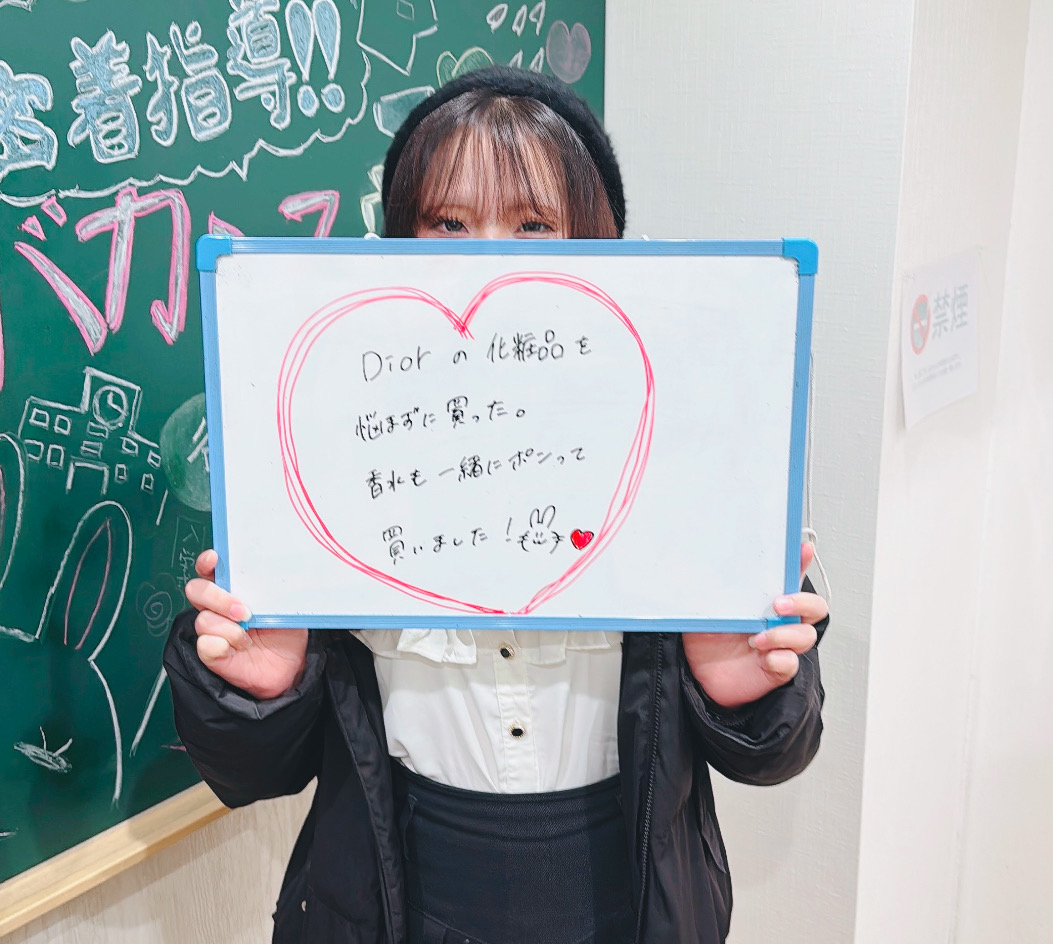 密着指導!!
バカンス
Diorの化粧品を
悩まずに買った。
香水も一緒にポンって
買いました!
禁煙